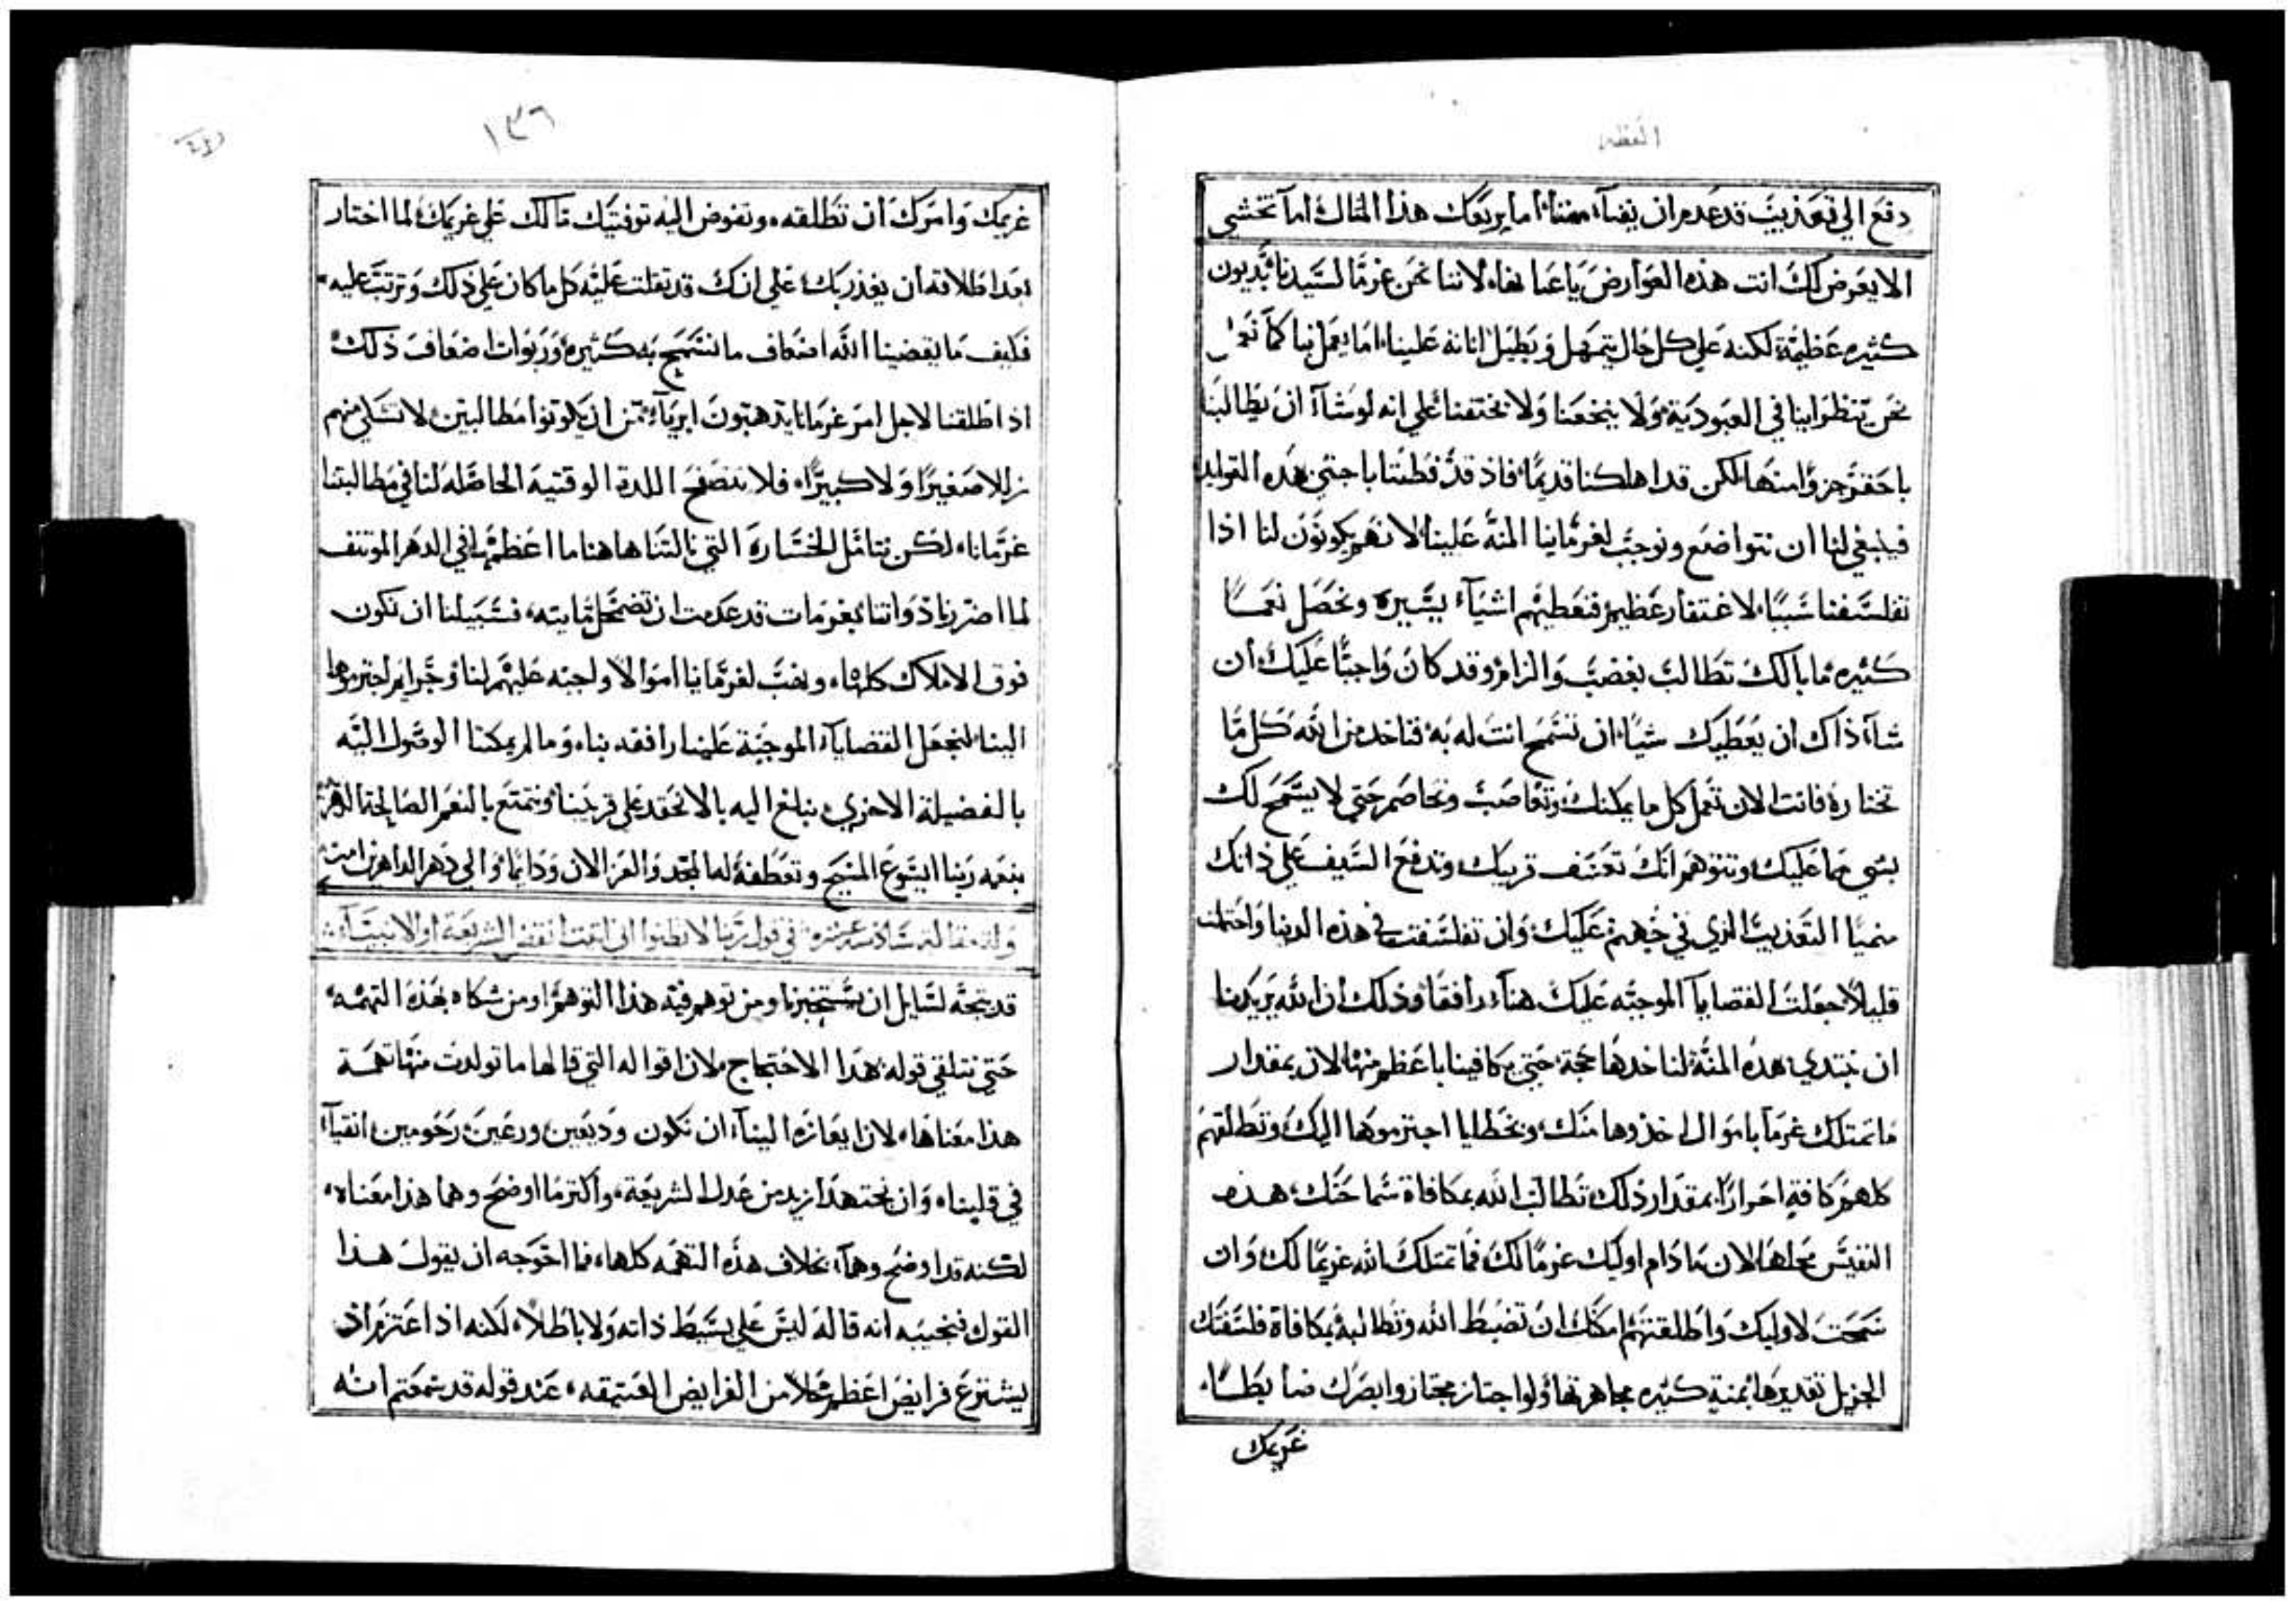 العظه
دفع الي تعذيب قد عدم ان يفنآ، أما يربعك هذا المثال أمآ تخشي
الا يعرض لك انت هذه العوارض ياعبا لاننا نحن غرمآ لسيدنا بديون
كثيره عظيمة لكنه علي كل حال يتمهل ويطيل اناته علينا، اما يعمل بنا كما نعمل
نحن بنظرابينا في العبودية ولا يخنقنا علي انه لو شاآ ان يطالبنا
باحقر جزوا منها لكن قد اهلكنا قديما، فاذ قد فطنا ياحبتي هذه القوليه
فينبغي لنا ان نتواضع ونوجب لغرماينا المنة علينا، لانهم يكونون لنا اذا
تفلسفنا سببا لاغتفار عظيم فنعطيهم اشيآء يسيره ونحصل نعما
كثيره، ما بالك تطالب بغضب والزام وقد كان واجبا عليك، ان
شاآ ذاك ان يعطيك شيا، ان تسمح انت له به فتاخد من الله كل ما
تختاره فانت الان تعمل كل ما يمكنك وتغاصب وتخاصم حتي لا يسمح لك
بشي مما عليك، وتتوهم انك تعسف قريبك، وتدفع السيف علي ذاتك
منميا التعذيب الذي في جهنم عليك، وان تفلسفت في هذه الدنيا واحتملت
قليلا، جعلت القضايآ الموجبه عليك هنآء رافقا، وذلك ان الله يريدنا
ان نبتدي هذه المنة لناخدها حجة حتي يكافينا باعظم منها، لان بمقدار
ما تمتلك غرمآ باموال اخذوها منك، وبخطايا اجترموها اليك، وتطلقهم
كلهم كافة احرارا، بمقدار ذلك تطالب الله بمكافاة سماحتك، هذه
النفيس محلها، لان مادام اوليك غرمآ لك فما تمتلك الله غريما لك، وان
سمحت لاوليك واطلقتهم امكنك ان تضبط الله وتطالبه بمكافاة فلسفتك
الجزيل تقديرها بمنية كثيره مجاهرتها، ولو اجتاز مجتاز وابصرك ضابطا،
غريمك
١٣٦
غريمك وامرك ان تطلقه، وتفوض اليه توفيتك مالك علي غريمك، لما اختار
بعد اطلاقه ان يغدر بك، علي انك قد نقلت عليه كل ما كان علي ذلك وترتب عليه،
فكيف ما يقضينا الله اضعاف ما نسمح به كثيرة، وربوات اضعاف ذلك،
اذا اطلقنا لاجل امره غرمآنا يذهبون ابريآء من ان يكونوا مطالبين، لا تسلي منهم
زللا صغيرا ولا كبيرا، فلا نتصفح اللدة الوقتية الحاصله لنا في مطالبتنا
غرمآنا، لكن نتامل الخسارة التي نالتنا هاهنا ما اعظمها في الدهر المونتف
لما اضررنا ذواتنا بغرمات قد عدمت ان تضمحل مايته، فسبيلنا ان نكون
فوق الاملاك كلها، ونهب لغرماينا اموالا واجبه عليهم لنا، وجرايم اجترموها
الينا، لنجعل القضايآء الموجبة علينا رافقه بناء، وما لم يمكنا الوصول اليه
بالفضيلة الاخري، نبلغ اليه بالا نحقد علي قريبنا، ونتمتع بالنعم الصالحة الدهرية
بنعمه ربنا ايسوع المسيح وتعطفه له المجد والعز الان ودايما، والي دهر الداهرين امين
وله مقاله سادسه عشره في قول ربنا لا تظنوا اني اتيت انقض الشريعة او الانبيآء
قد يتجه لسايل ان يستخبرنا ومن توهم فيه هذا التوهم او من شكاه بهذه التهمه،
حتي نتلقي قوله هذا الاحتجاج، لان اقواله التي قالها ما تولدت منها تهمة
هذا معناها، لان ايعازه الينآء ان نكون وديعين ورعين رحومين انقيآء
في قلبنا، وان نجتهد ازيد من عدل الشريعة، واكثر ما اوضح وهما هذا معناه،
لكنه قد اوضح وهمآء بخلاف هذه التهمه كلها، فما احوجه ان يقول هذا
القول فنجيبه انه قاله ليس علي بسيط ذاته ولا باطلا، لكنه اذ اعتزم ان
يشترع فرايض اعظم محلا من الفرايض العتيقه، عند قوله قد سمعتم انه